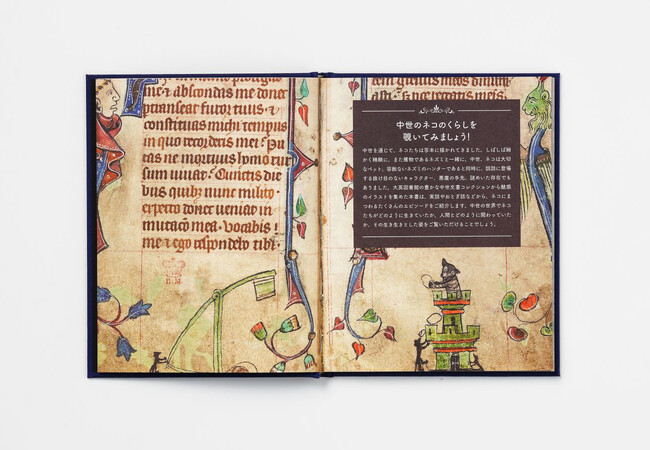 me · & abscondas me donec
pertranseat furor tuus · &
constituas michi tempus
in quo recorderis mei · Pu
tas ne mortuus homo rur
sum uiuat · Cunctis die
bus quibus nunc milito
expecto donec ueniat in
mutatio mea · Vocabis
me & ego respondebo tibi ·
中世のネコのくらしを
覗いてみましょう!
中世を通じて、ネコたちは百年に描かれてきました。しばしば細
かく精緻に、また獲物であるネズミと一緒に。中世、ネコは大切
なペット、容赦ないネズミのハンターであると同時に、説話に登場
する抜け目のないキャラクター、悪魔の手先、謎めいた存在でも
ありました。大英図書館の豊かな中世文書コレクションから魅惑
のイラストを集めた本書は、実話やおとぎ話などから、ネコにま
つわるたくさんのエピソードをご紹介します。中世の世界でネコ
たちがどのように生きていたか、人間とどのように関わっていた
か、その生き生きとした姿をご覧いただけることでしょう。